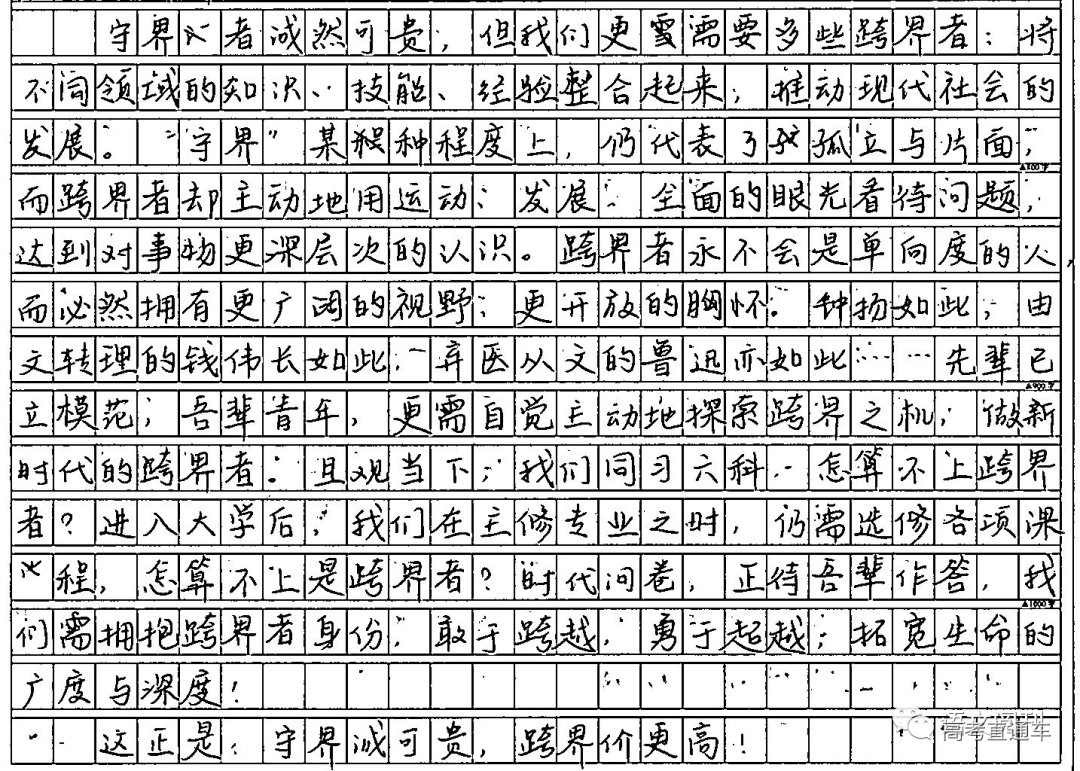 守界者诚然可贵，但我们更需要多些跨界者：将
不同领域的知识、技能、经验整合起来，推动现代社会的
发展。“守界”某种程度上，仍代表了孤立与片面，
▲800字
而跨界者却主动地用运动、发展、全面的眼光看待问题，
达到对事物更深层次的认识。跨界者永不会是单向度的人，
而必然拥有更广阔的视野，更开放的胸怀。种扬如此，由
文转理的钱伟长如此，弃医从文的鲁迅亦如此……先辈已
▲900字
立模范，吾辈青年，更需自觉主动地探索跨界之机，做新
时代的跨界者。且观当下，我们同习六科，怎算不上跨界
者？进入大学后，我们在主修专业之时，仍需选修各项课
程，怎算不上是跨界者？时代问卷，正待吾辈作答，我
▲1000字
们需拥抱跨界者身份，敢于跨越，勇于起越，拓宽生命的
广度与深度！
这正是：守界诚可贵，跨界价更高！
高考直通车